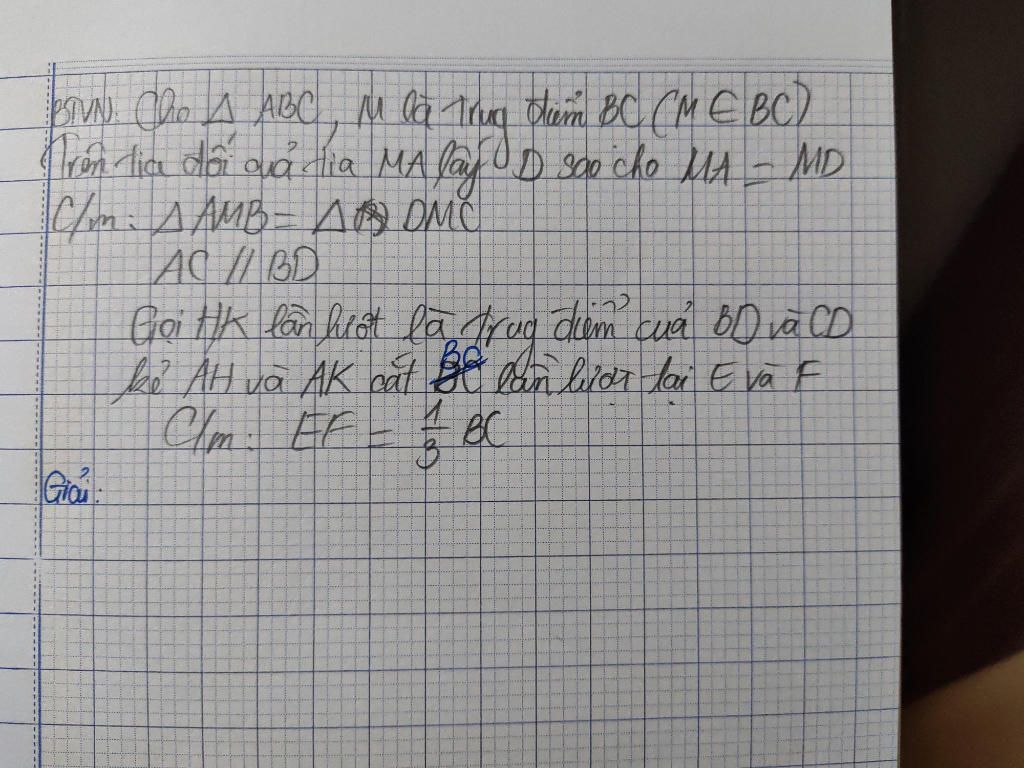 BTVN: Cho △ ABC, M là trug điểm BC (M ∈ BC)
Trên tia đối quả tia MA lấy D sao cho MA = MD
C/m: △ AMB = △ DMC
AC // BD
Gọi HK lần lượt là trug điểm cuả BD và CD
kẻ AH và AK cắt BC lần lượt tại E và F
C/m: EF = 1/3 BC
Giải: